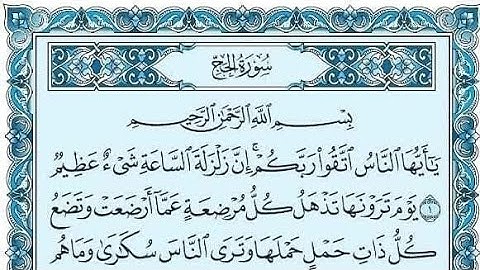 سُورَةُ الحَجِّ
بِسْمِ اللَّهِ الرَّحْمَٰنِ الرَّحِيمِ
يَٰٓأَيُّهَا النَّاسُ اتَّقُوا رَبَّكُمْ ۚ إِنَّ زَلْزَلَةَ السَّاعَةِ شَىْءٌ عَظِيمٌ
١ يَوْمَ تَرَوْنَهَا تَذْهَلُ كُلُّ مُرْضِعَةٍ عَمَّآ أَرْضَعَتْ وَتَضَعُ
كُلُّ ذَاتِ حَمْلٍ حَمْلَهَا وَتَرَى النَّاسَ سُكَٰرَىٰ وَمَا هُم